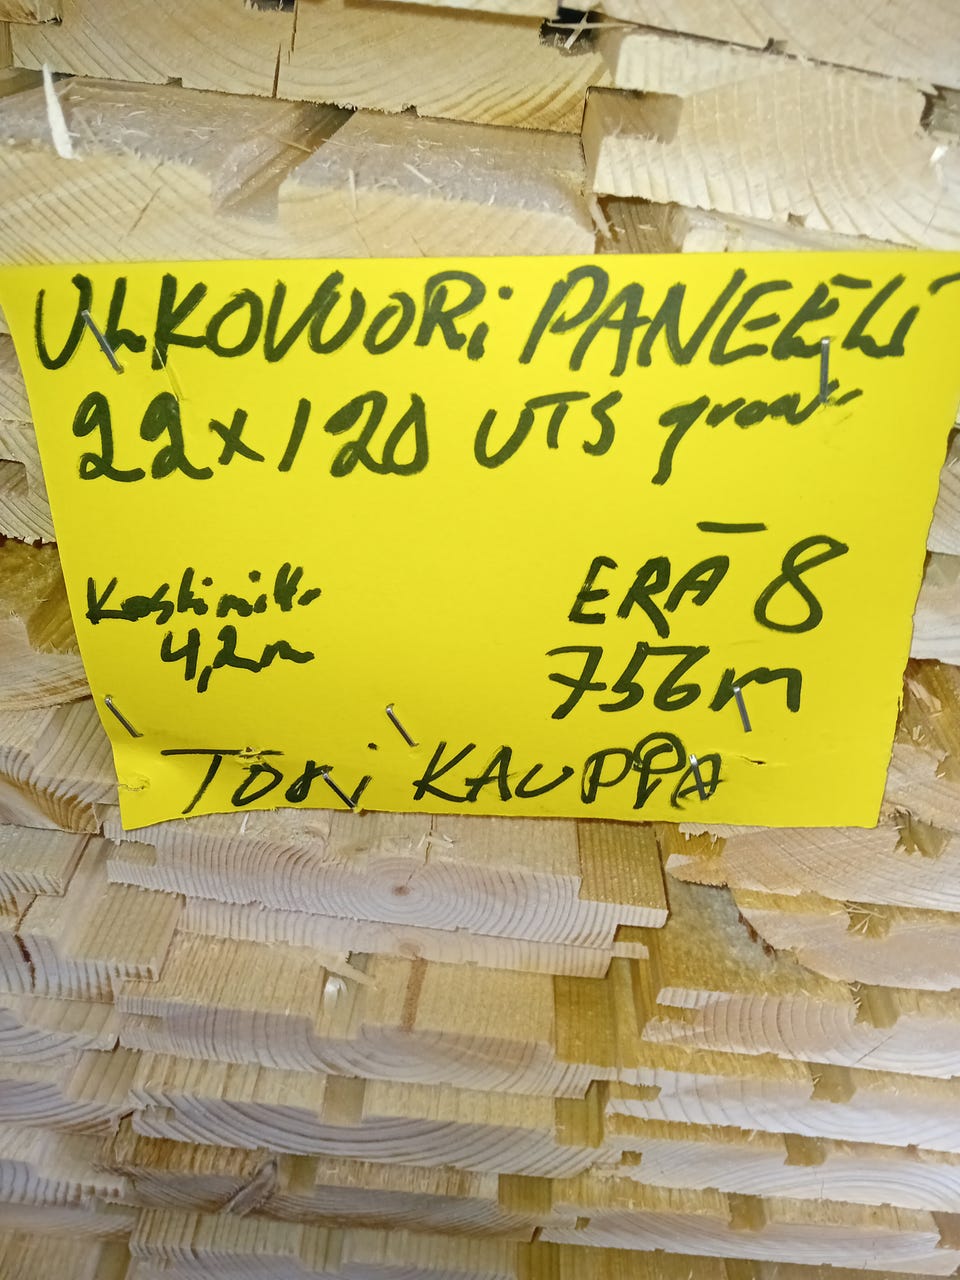 ULKOVUORi PANEELi
22x120 UTS
ERÄ 8
Keskimitta
4,2m
756m
TORi KAUPPA